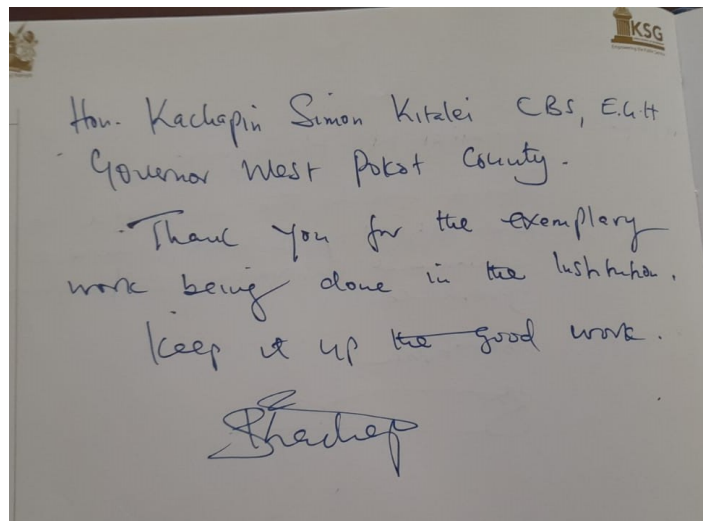 KSG
Hon. Kachapin Simon Kitalei CBS, E.G.H
Governor West Pokot County.
Thank you for the exemplary
work being done in the Institution.
Keep it up the good work.